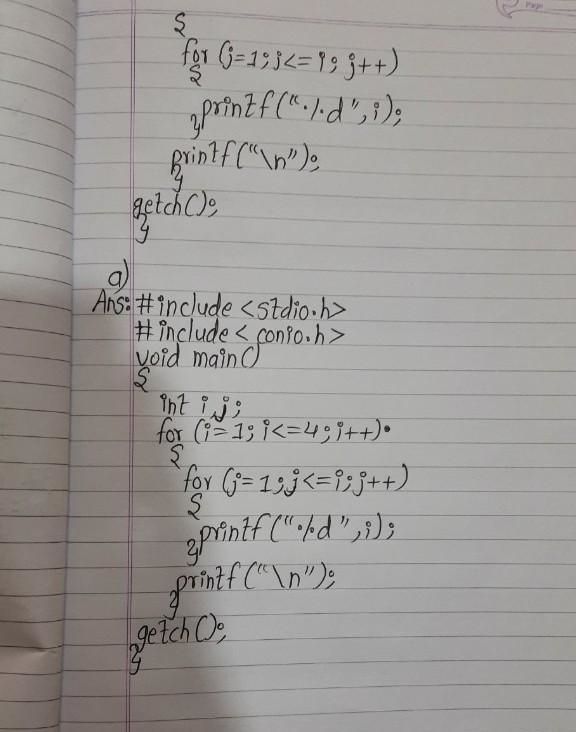 {
for (j=1;j<=i; j++)
{
printf("%d",i);
}
printf("\n");
}
getch();
}
a)
Ans: #include <stdio.h>
#include < conio.h>
void main()
{
int i,j;
for (i=1; i<=4; i++)
{
for (j=1;j<=i;j++)
{
printf("%d",i);
}
printf("\n");
}
getch();
}